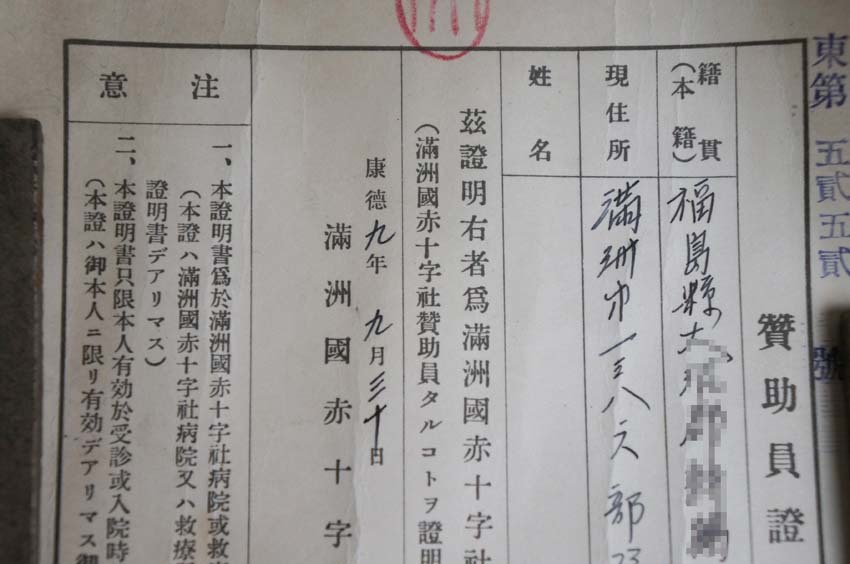 東第五貳五貳號
贊助員證
籍貫
(本籍)
福島縣
現住所
滿洲
姓名
茲證明右者爲滿洲國赤十字社
(滿洲國赤十字社贊助員タルコトヲ證明
康德九年九月三十日
滿洲國赤十字
注意
一、本證明書爲於滿洲國赤十字社病院或救
(本證ハ滿洲國赤十字社病院又ハ救療
證明書デアリマス)
二、本證明書只限本人有効於受診或入院時
(本證ハ御本人ニ限リ有効デアリマス御